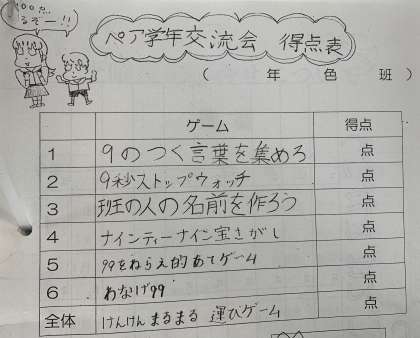 るぞー!!
ペア学年交流会 得点表
( 年 色 班)
ゲーム 得点
1 9のつく言葉を集めろ 点
2 9秒ストップウォッチ 点
3 班の人の名前を作ろう 点
4 ナインティーナイン宝さがし 点
5 99をねらえ的あてゲーム 点
6 わなげ99 点
全体 けんけんまるまる運びゲーム 点